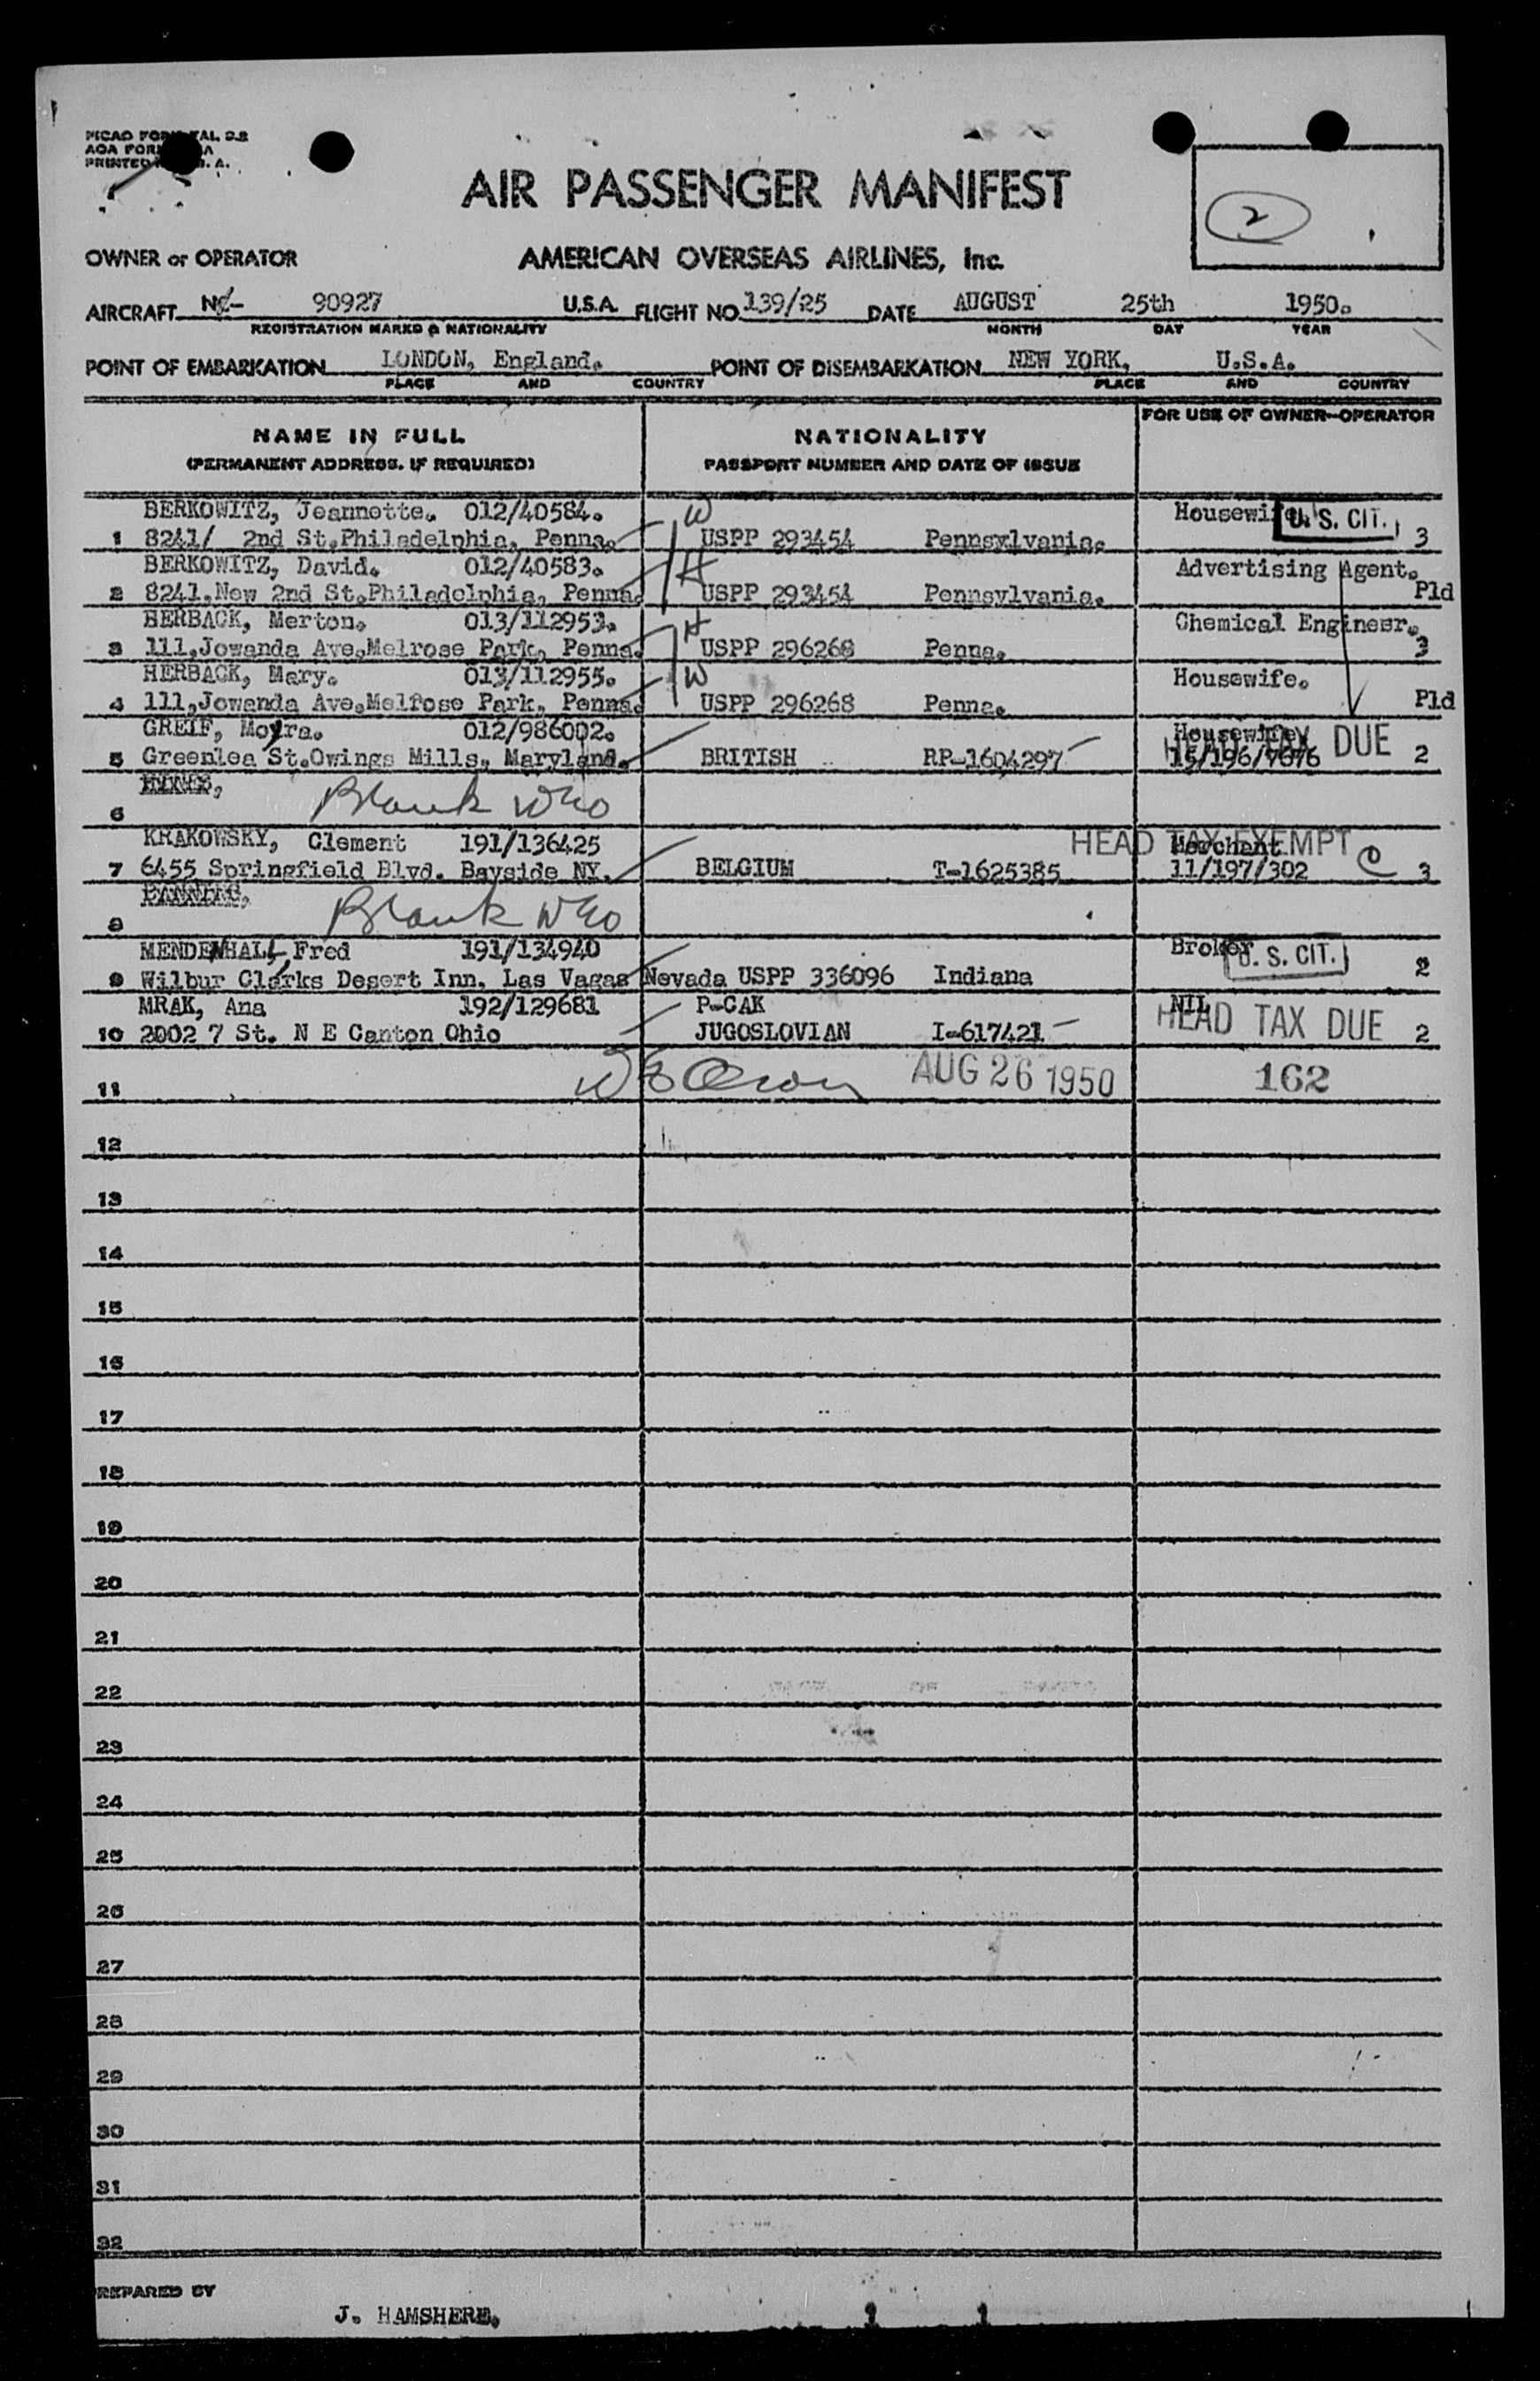 AIR PASSENGER MANIFEST
2
OWNER or OPERATOR AMERICAN OVERSEAS AIRLINES, Inc.
AIRCRAFT 90927 U.S.A. FLIGHT NO. 139/25 DATE AUGUST 25th 1950.
REGISTRATION MARKS & NATIONALITY MONTH DAY YEAR
POINT OF EMBARKATION LONDON, England. POINT OF DISEMBARKATION NEW YORK, U.S.A.
PLACE AND COUNTRY PLACE AND COUNTRY
NAME IN FULL NATIONALITY FOR USE OF OWNER-OPERATOR
(PERMANENT ADDRESS, IF REQUIRED) PASSPORT NUMBER AND DATE OF ISSUE
BERKOWITZ, Jeannette. 012/40584. W Housewife. U. S. CIT.
1 8241/ 2nd St.Philadelphia, Penna. USPP 293454 Pennsylvania. 3
BERKOWITZ, David. 012/40583. H Advertising Agent.
2 8241,New 2nd St.Philadelphia, Penna. USPP 293454 Pennsylvania. Pld
HERBACK, Merton. 013/112953. H Chemical Engineer.
3 111,Jowanda Ave,Melrose Park, Penna. USPP 296268 Penna. 3
HERBACK, Mary. 013/112955. W Housewife.
4 111,Jowanda Ave,Melrose Park, Penna. USPP 296268 Penna. Pld
GREIF, Moyra. 012/986002. Housewife
5 Greenlea St.Owings Mills, Maryland. BRITISH RP-1604297 HEAD TAX DUE 2
6 Blank
KRAKOWSKY, Clement 191/136425 HEAD TAX EXEMPT Merchant
7 6455 Springfield Blvd. Bayside NY. BELGIUM T-1625385 11/197/302 C 3
8 Blank
MENDENHALL, Fred 191/134940 Broker U. S. CIT.
9 Wilbur Clarks Desert Inn, Las Vagas Nevada USPP 336096 Indiana 2
MRAK, Ana 192/129681 P-CAK NIL
10 2002 7 St. N E Canton Ohio JUGOSLOVIAN I-617421 HEAD TAX DUE 2
11 AUG 26 1950 162
12
13
14
15
16
17
18
19
20
21
22
23
24
25
26
27
28
29
30
31
32
PREPARED BY
J. HAMSHERE.